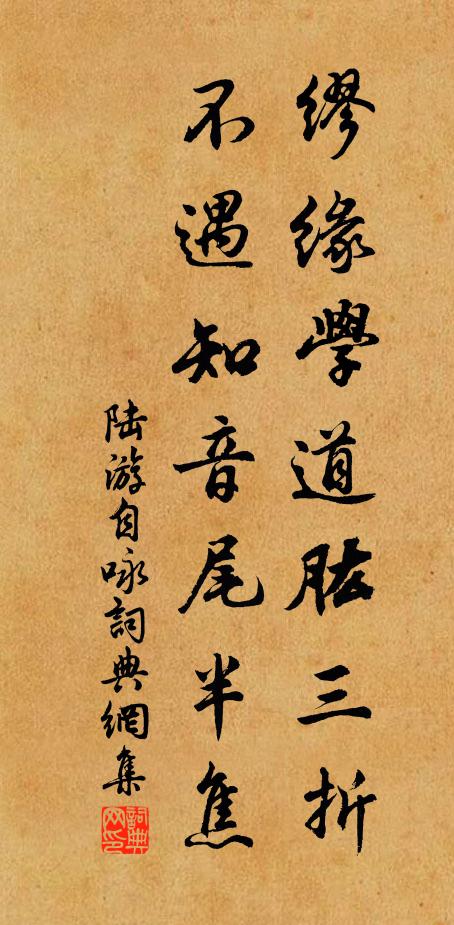 缪缘學道肱三折
不遇知音尾半焦
陆游自咏詞典網集
詞典网印